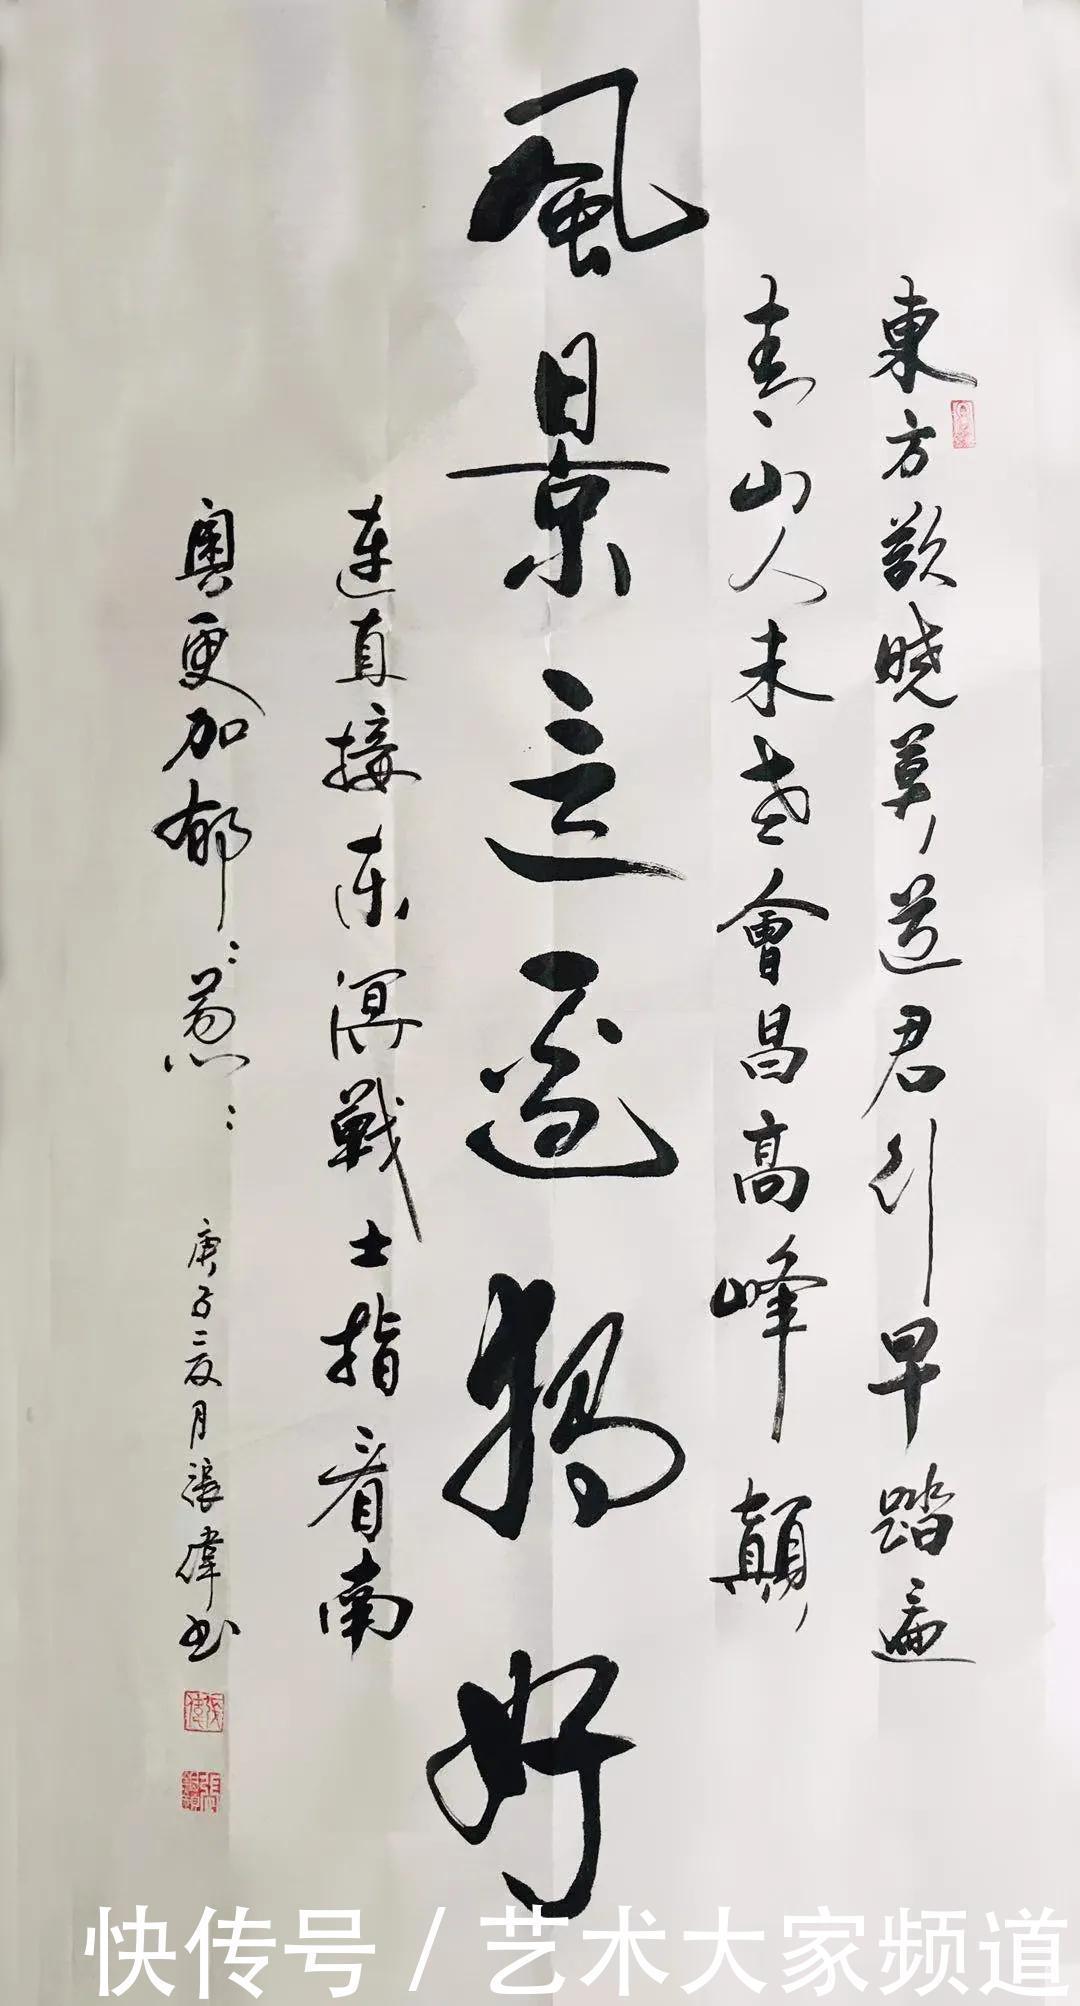 東方欲曉莫道君行早踏遍
青山人未老會昌高峰顛
風景這邊獨好
連直接东溟戰士指看南
粵更加郁々葱々
庚子夏月張偉书
快传号/艺术大家频道